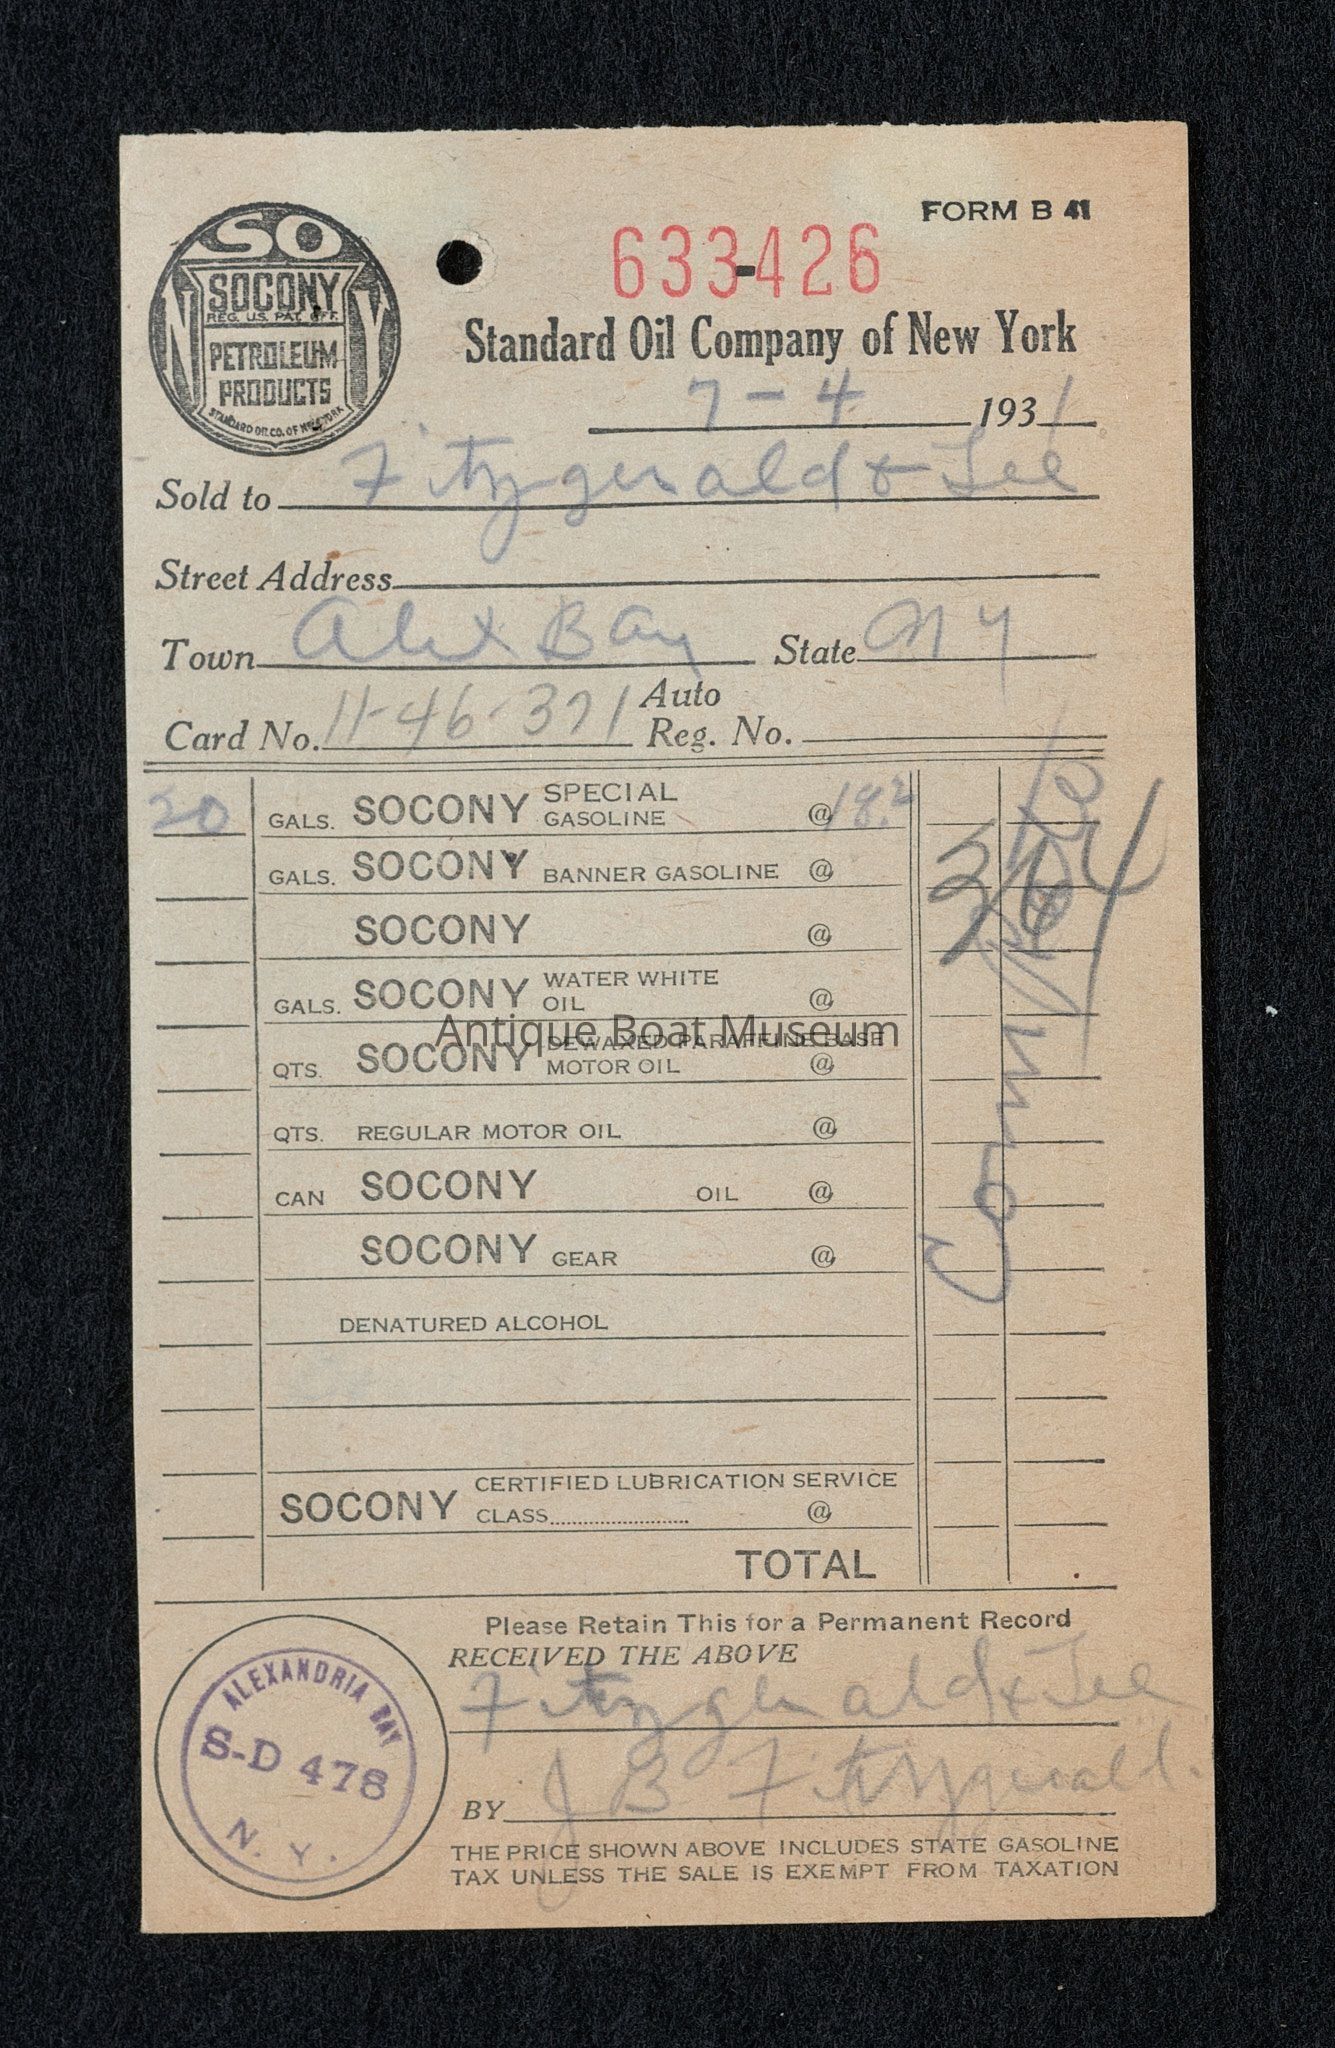 FORM B 41
633-426
SO
NY
SOCONY
REG. U.S. PAT. OFF.
PETROLEUM
PRODUCTS
STANDARD OIL CO. OF NEW YORK
Standard Oil Company of New York
7-4 1931
Sold to Fitzgerald & Lee
Street Address
Town Alex Bay State NY
Card No. 11-46-371 Auto Reg. No.
20 GALS. SOCONY SPECIAL GASOLINE @ 18.2 3 64
GALS. SOCONY BANNER GASOLINE @
SOCONY @
GALS. SOCONY WATER WHITE OIL @
Antique Boat Museum
QTS. SOCONY DEWAXED PARAFFINE BASE MOTOR OIL @
QTS. REGULAR MOTOR OIL @
CAN SOCONY OIL @
SOCONY GEAR @
DENATURED ALCOHOL
SOCONY CERTIFIED LUBRICATION SERVICE
CLASS @
TOTAL
Please Retain This for a Permanent Record
RECEIVED THE ABOVE
Fitzgerald & Lee
BY J B Fitzgerald.
THE PRICE SHOWN ABOVE INCLUDES STATE GASOLINE
TAX UNLESS THE SALE IS EXEMPT FROM TAXATION
ALEXANDRIA BAY
S-D 478
N. Y.